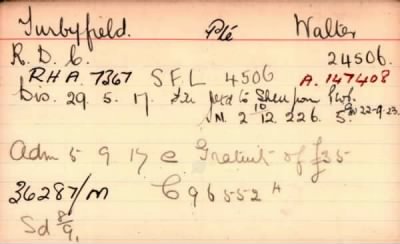 Turbyfield. Pte Walter
R. D. C. 24506.
RHA. 7367 S.F.L 4506 A. 147408
Dis. 29. 5. 17. to
M. 2 12 226. 5. 22-9-23.
Adm 5 9 17 @ Gratuit of £35
36287/M C96552 H
Sd 8/9.